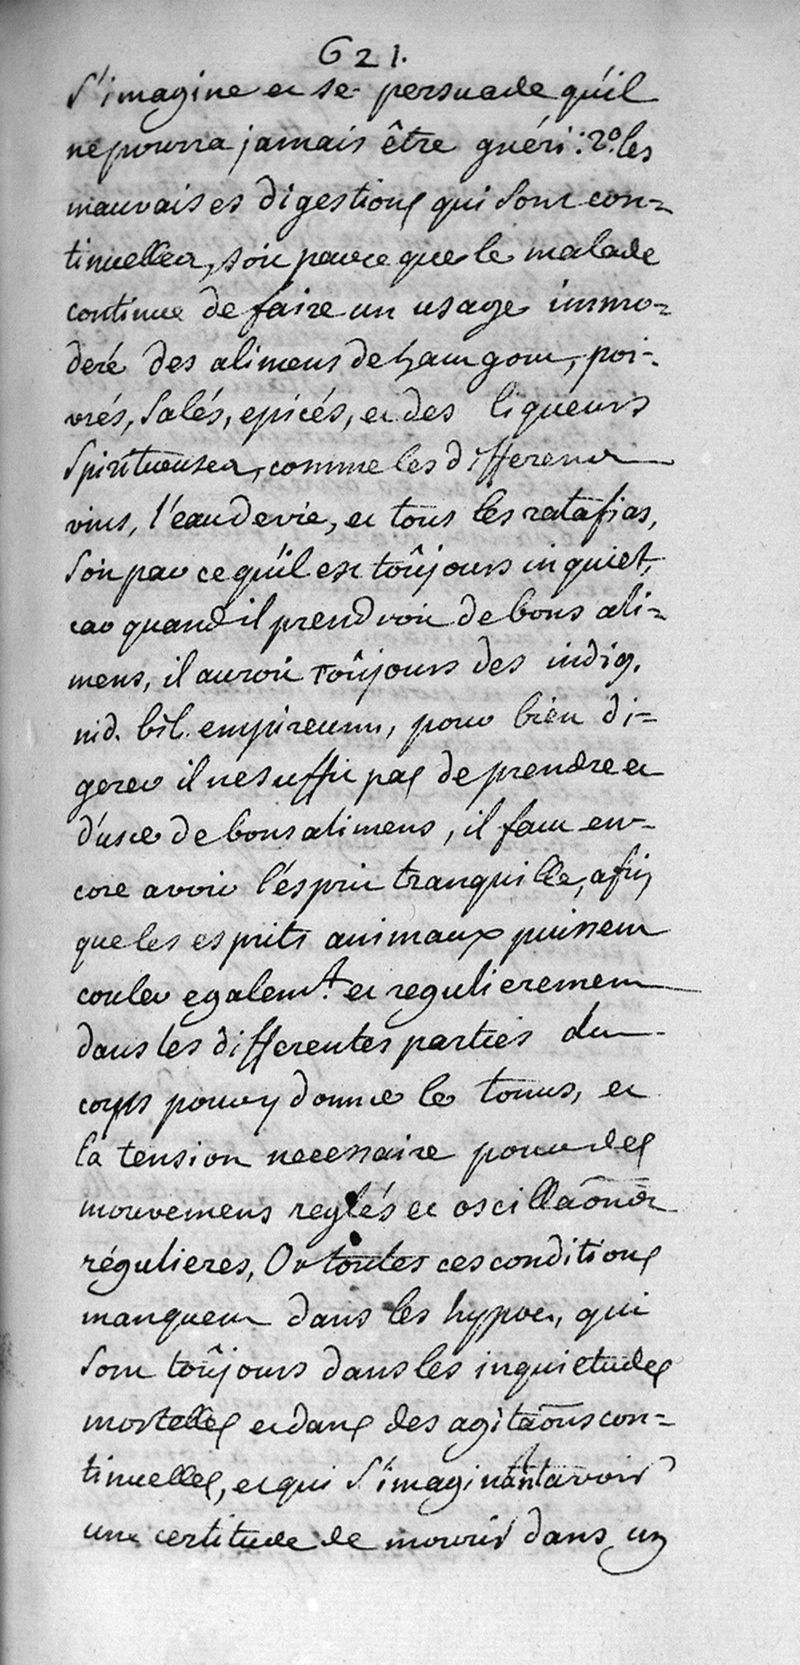 621.
s'imagine et se persuade qu'il
ne pourra jamais être guéri: 2º. les
mauvaises digestions qui sont con=
tinuelles, soit parce que le malade
continue de faire un usage immo=
deré des alimens de haut gout, poi-
vrés, salés, epicés, et des liqueurs
spiritueuses, comme les differents
vins, l'eau de vie, et tous les ratafias,
soit par ce qu'il est toûjours inquiet,
car quand il prendroit de bons ali=
mens, il auroit toûjours des indig.
nid. bil. empireum, pour bien di=
gerer il ne suffit pas de prendre et
d'user de bons alimens, il faut en-
core avoir l'ésprit tranquille, afin
que les esprits animaux puissent
couler egalemt. et regulierement
dans les differentes parties du
corps pour y donner le tonus, et
la tension necessaire pour des
mouvemens reglés et oscillaôns
régulieres, Or toutes ces conditions
manquent dans les hyppoc, qui
sont toûjours dans les inquietudes
mortelles et dans des agitaôns con=
tinuelles, et qui s'imaginant avoir
une certitude de mourir dans un